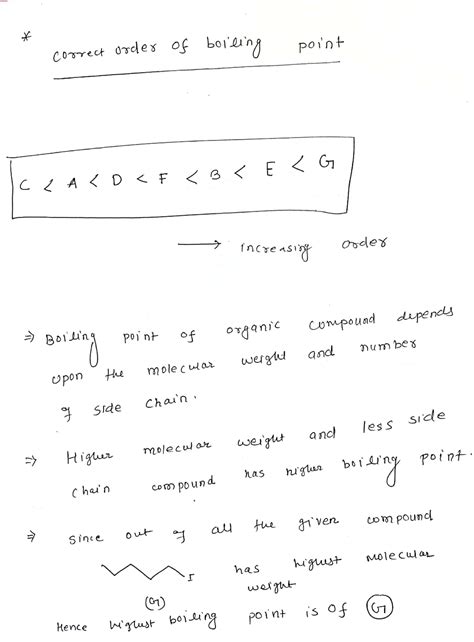 *
correct order of boiling point
C < A < D < F < B < E < G
→ Increasing order
⇒ Boiling point of organic compound depends
upon the molecular weight and number
of side chain.
⇒ Higher molecular weight and less side
chain compound has higher boiling point.
⇒ since out of all the given compound
I has highest molecular
weight
(G)
Hence highest boiling point is of G